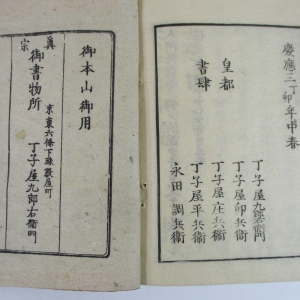 慶應三丁卯年中春
皇都
書肆
丁子屋九郎右衞門
丁子屋卯兵衞
丁子屋庄兵衞
丁子屋平兵衞
永田調兵衞
御本山御用
眞宗
御書物所
京東六條下珠數屋町
丁子屋九郎右衞門